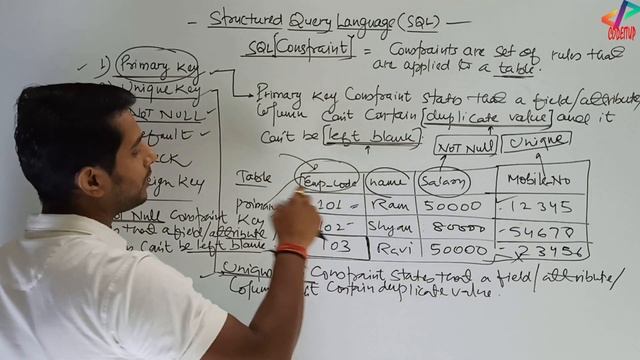 - Structured Query Language (SQL) -
CODEITUP
SQL [Constraint] = Constraints are set of rules that
are applied to a table.
1) Primary Key
Unique Key
NOT NULL
Default
Key
Primary Key Constraint states that a field/attribute/
Column Can't Contain [duplicate value] and it
Can't be [left blank]
NOT NULL
Unique
Table
emp_code name Salary Mobile No
101 Ram 50000 12345
102 Shyam 80000 54678
103 Ravi 50000 23456
Null Constraint Key
that a field/attribute
Can't be left blank
Constraint states that a field/attribute/
Column Contain duplicate value.